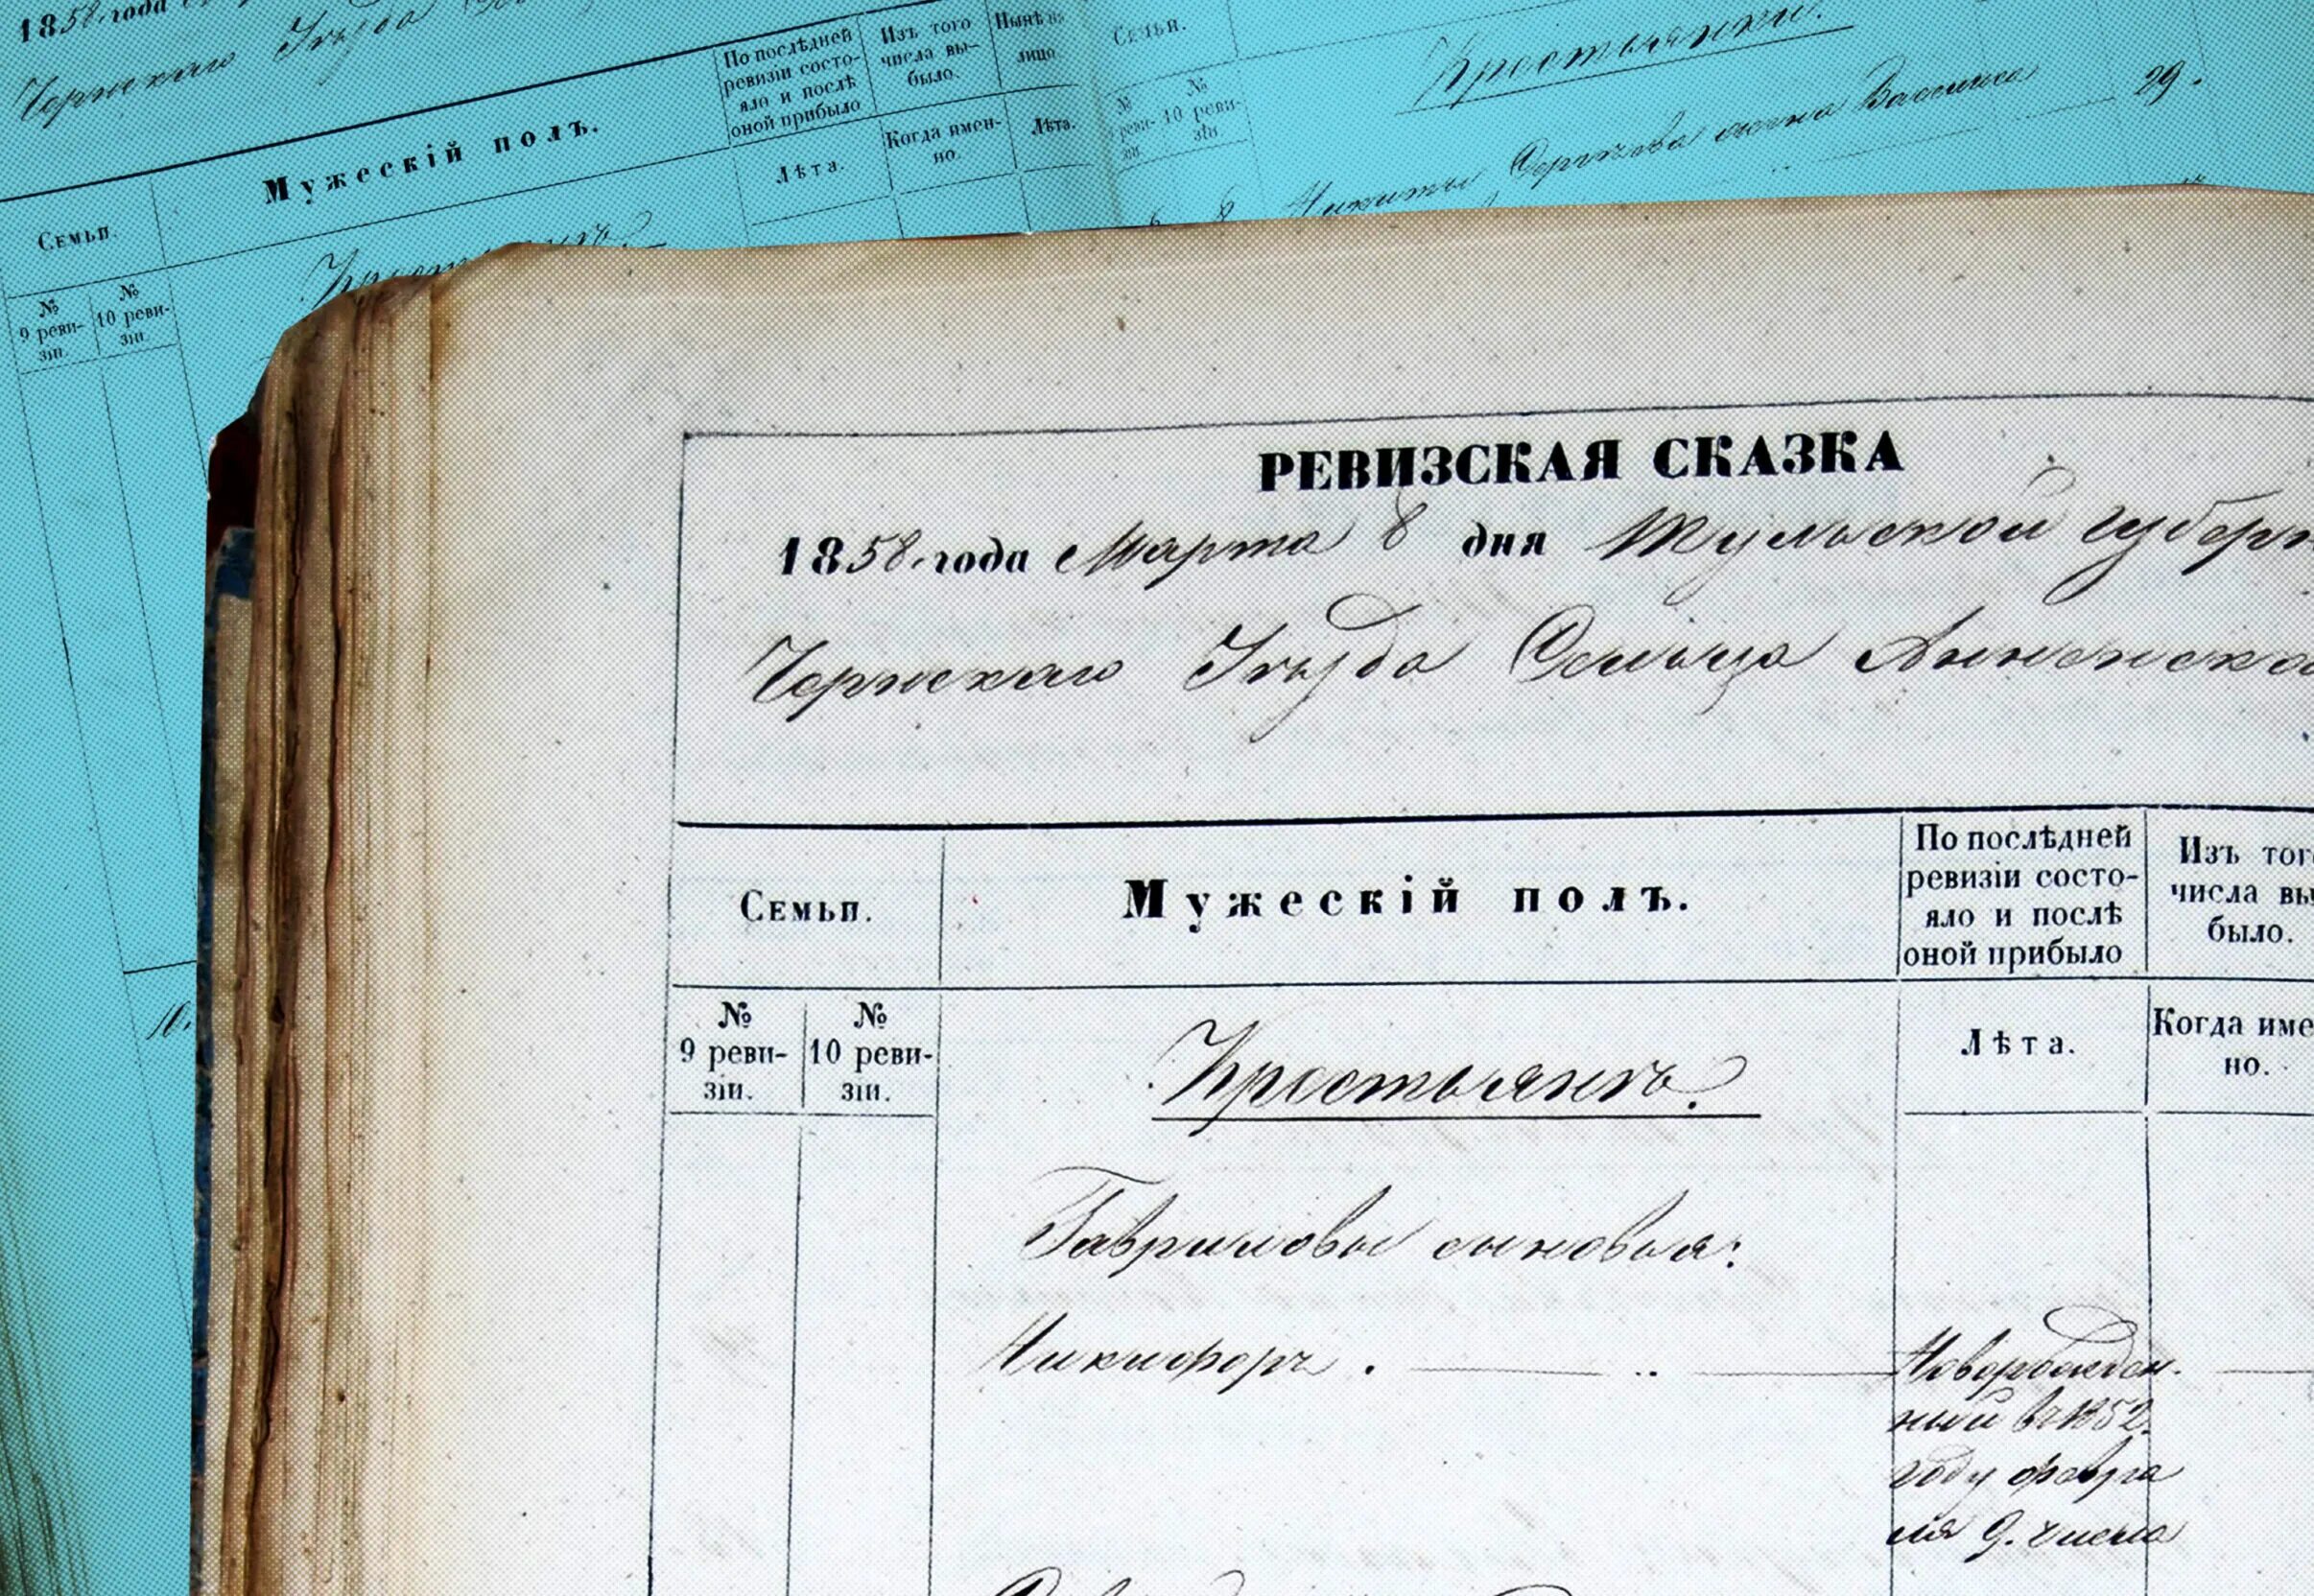 1858. года
Чернскаго Уѣзда
Семьи.
Мужескій полъ.
По послѣдней
ревизіи состо-
яло и послѣ
оной прибыло
Изъ того
числа вы-
было.
Нынѣ на
лицо.
Лѣта.
Когда имен-
но.
Лѣта.
№
9 реви-
зіи.
№
10 реви-
зіи.
Семьи.
№
реви-
зіи
№
10 реви-
зіи
Крестьянки.
Никиты Сергѣева жена Василиса 29.
6 8
10.
РЕВИЗСКАЯ СКАЗКА
1858. года Марта 8 дня Тульской губерн
Чернскаго Уѣзда Сельца Анненско
Семьи.
Мужескій полъ.
По послѣдней
ревизіи состо-
яло и послѣ
оной прибыло
Изъ того
числа вы
было.
№
9 реви-
зіи.
№
10 реви-
зіи.
Крестьянъ.
Лѣта.
Когда име
но.
Гавриловы сыновья:
Никифоръ.
Новорожден-
ный въ 1852.
году февра
ля 9. числа